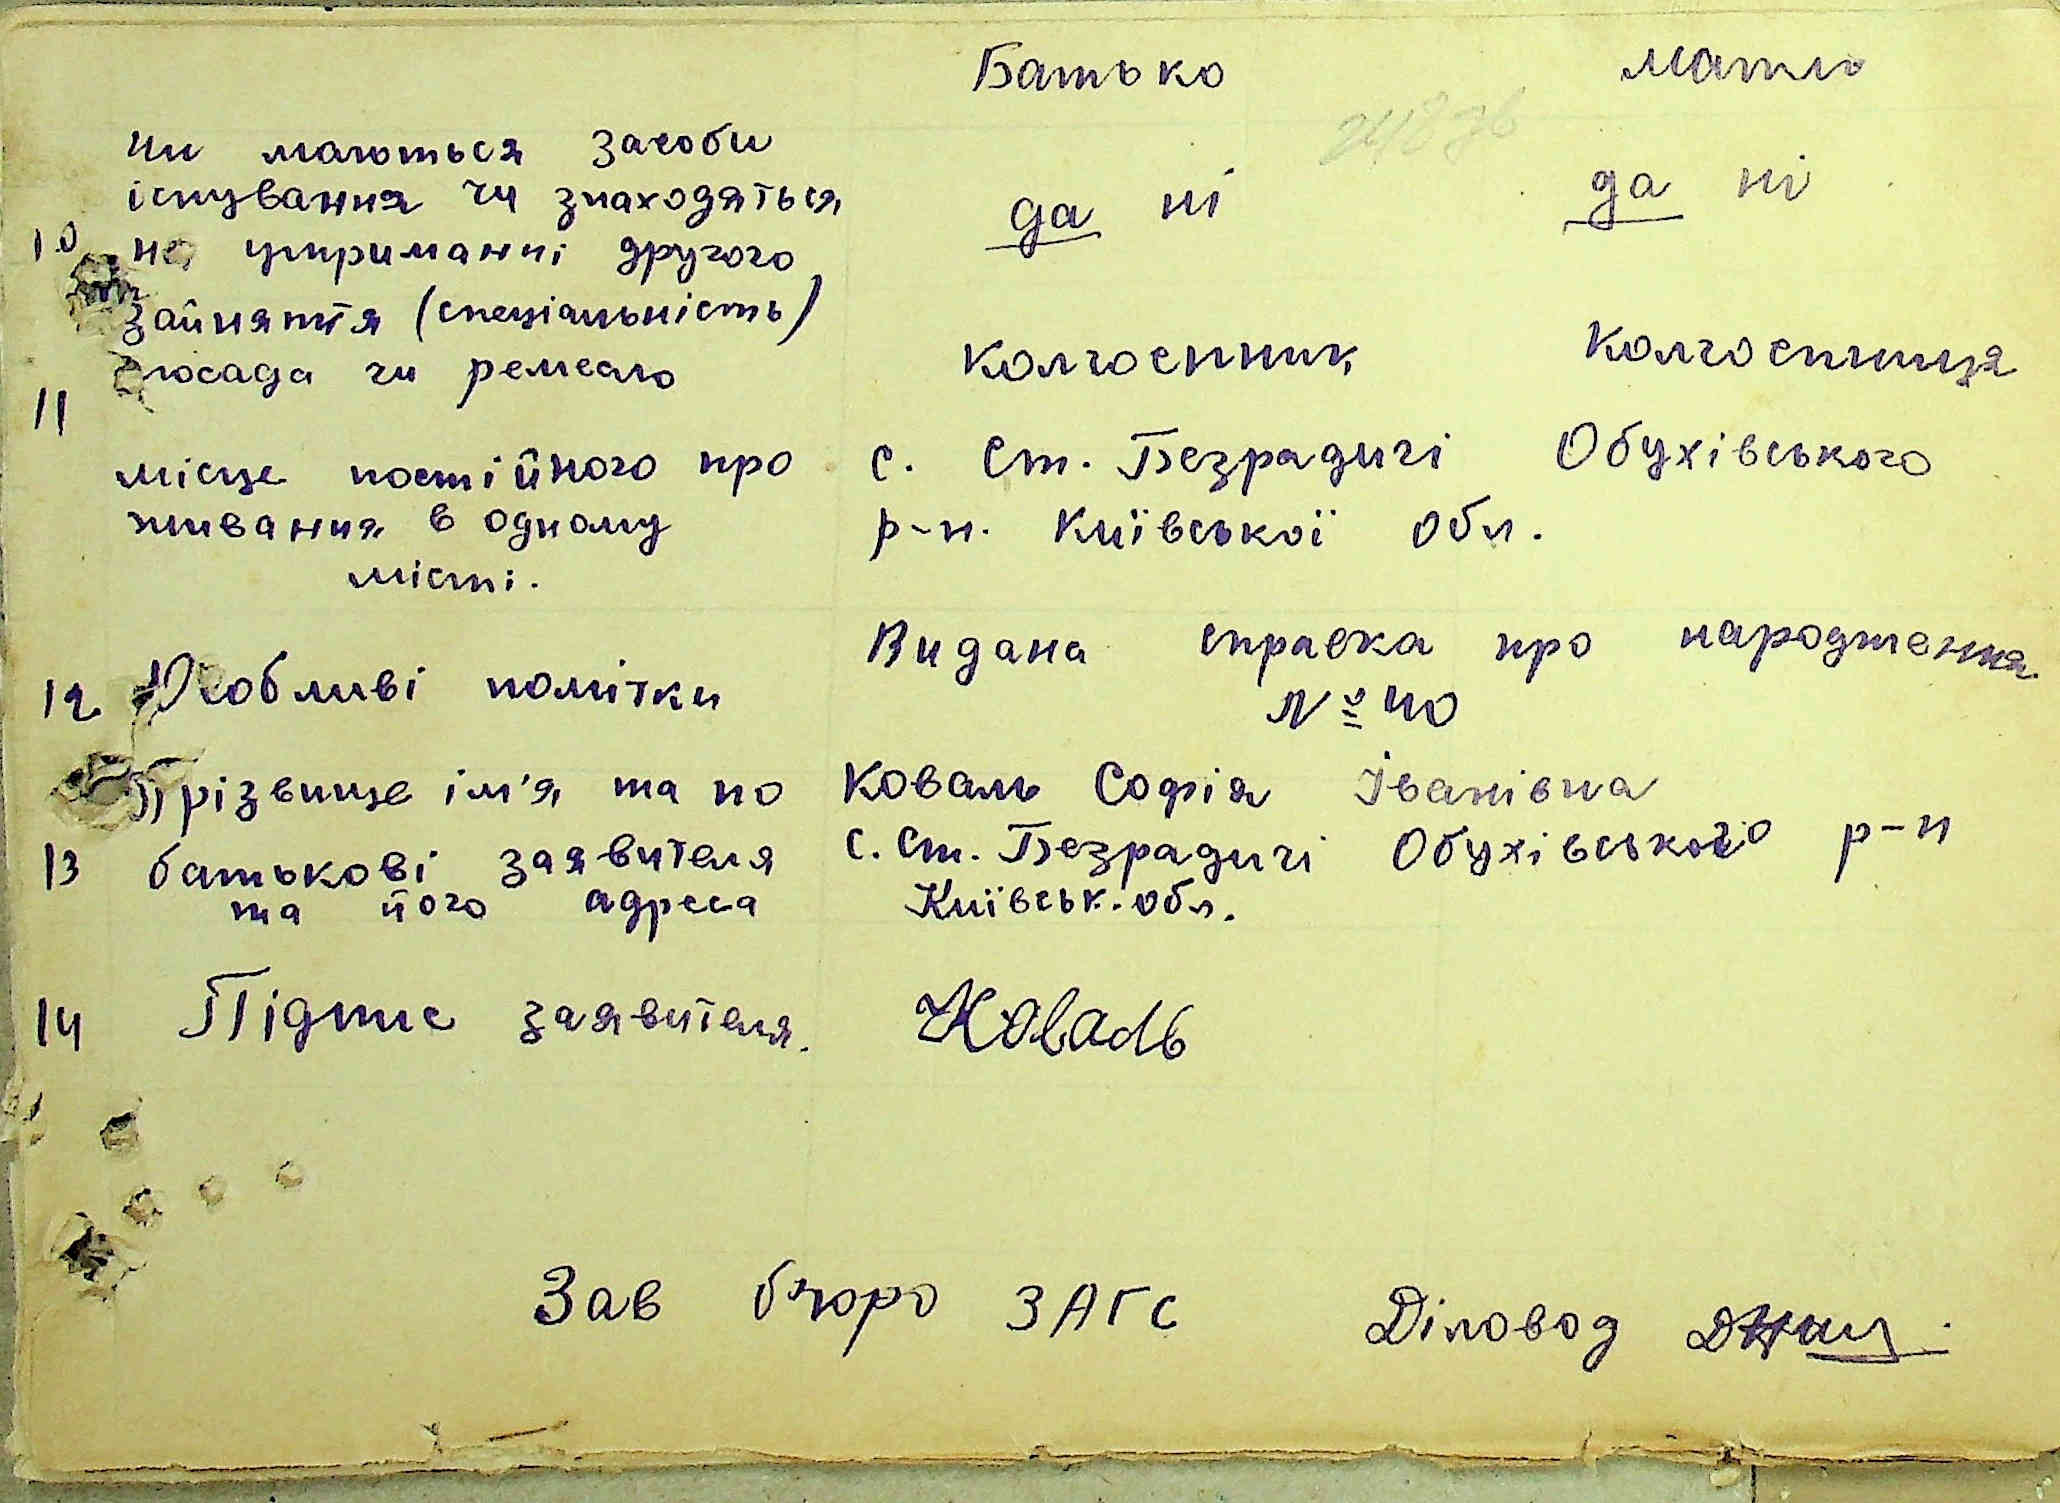 Батько мати
чи маються засоби
існування чи знаходяться
10 на утриманні другого да ні да ні
зайняття (спеціальність)
посада чи ремесло колгоспник колгоспниця
11
місце постійного про с. Ст. Безрадичі Обухівського
живання в одному р-н. Київської обл.
місті.
Видана справка про народження
12 Особливі помітки № 40
Прізвище ім'я та по Коваль Софія Іванівна
13 батькові заявителя с. Ст. Безрадичі Обухівського р-н
та його адреса Київськ. обл.
14 Підпис заявителя. Коваль
Зав бюро ЗАГС Діловод